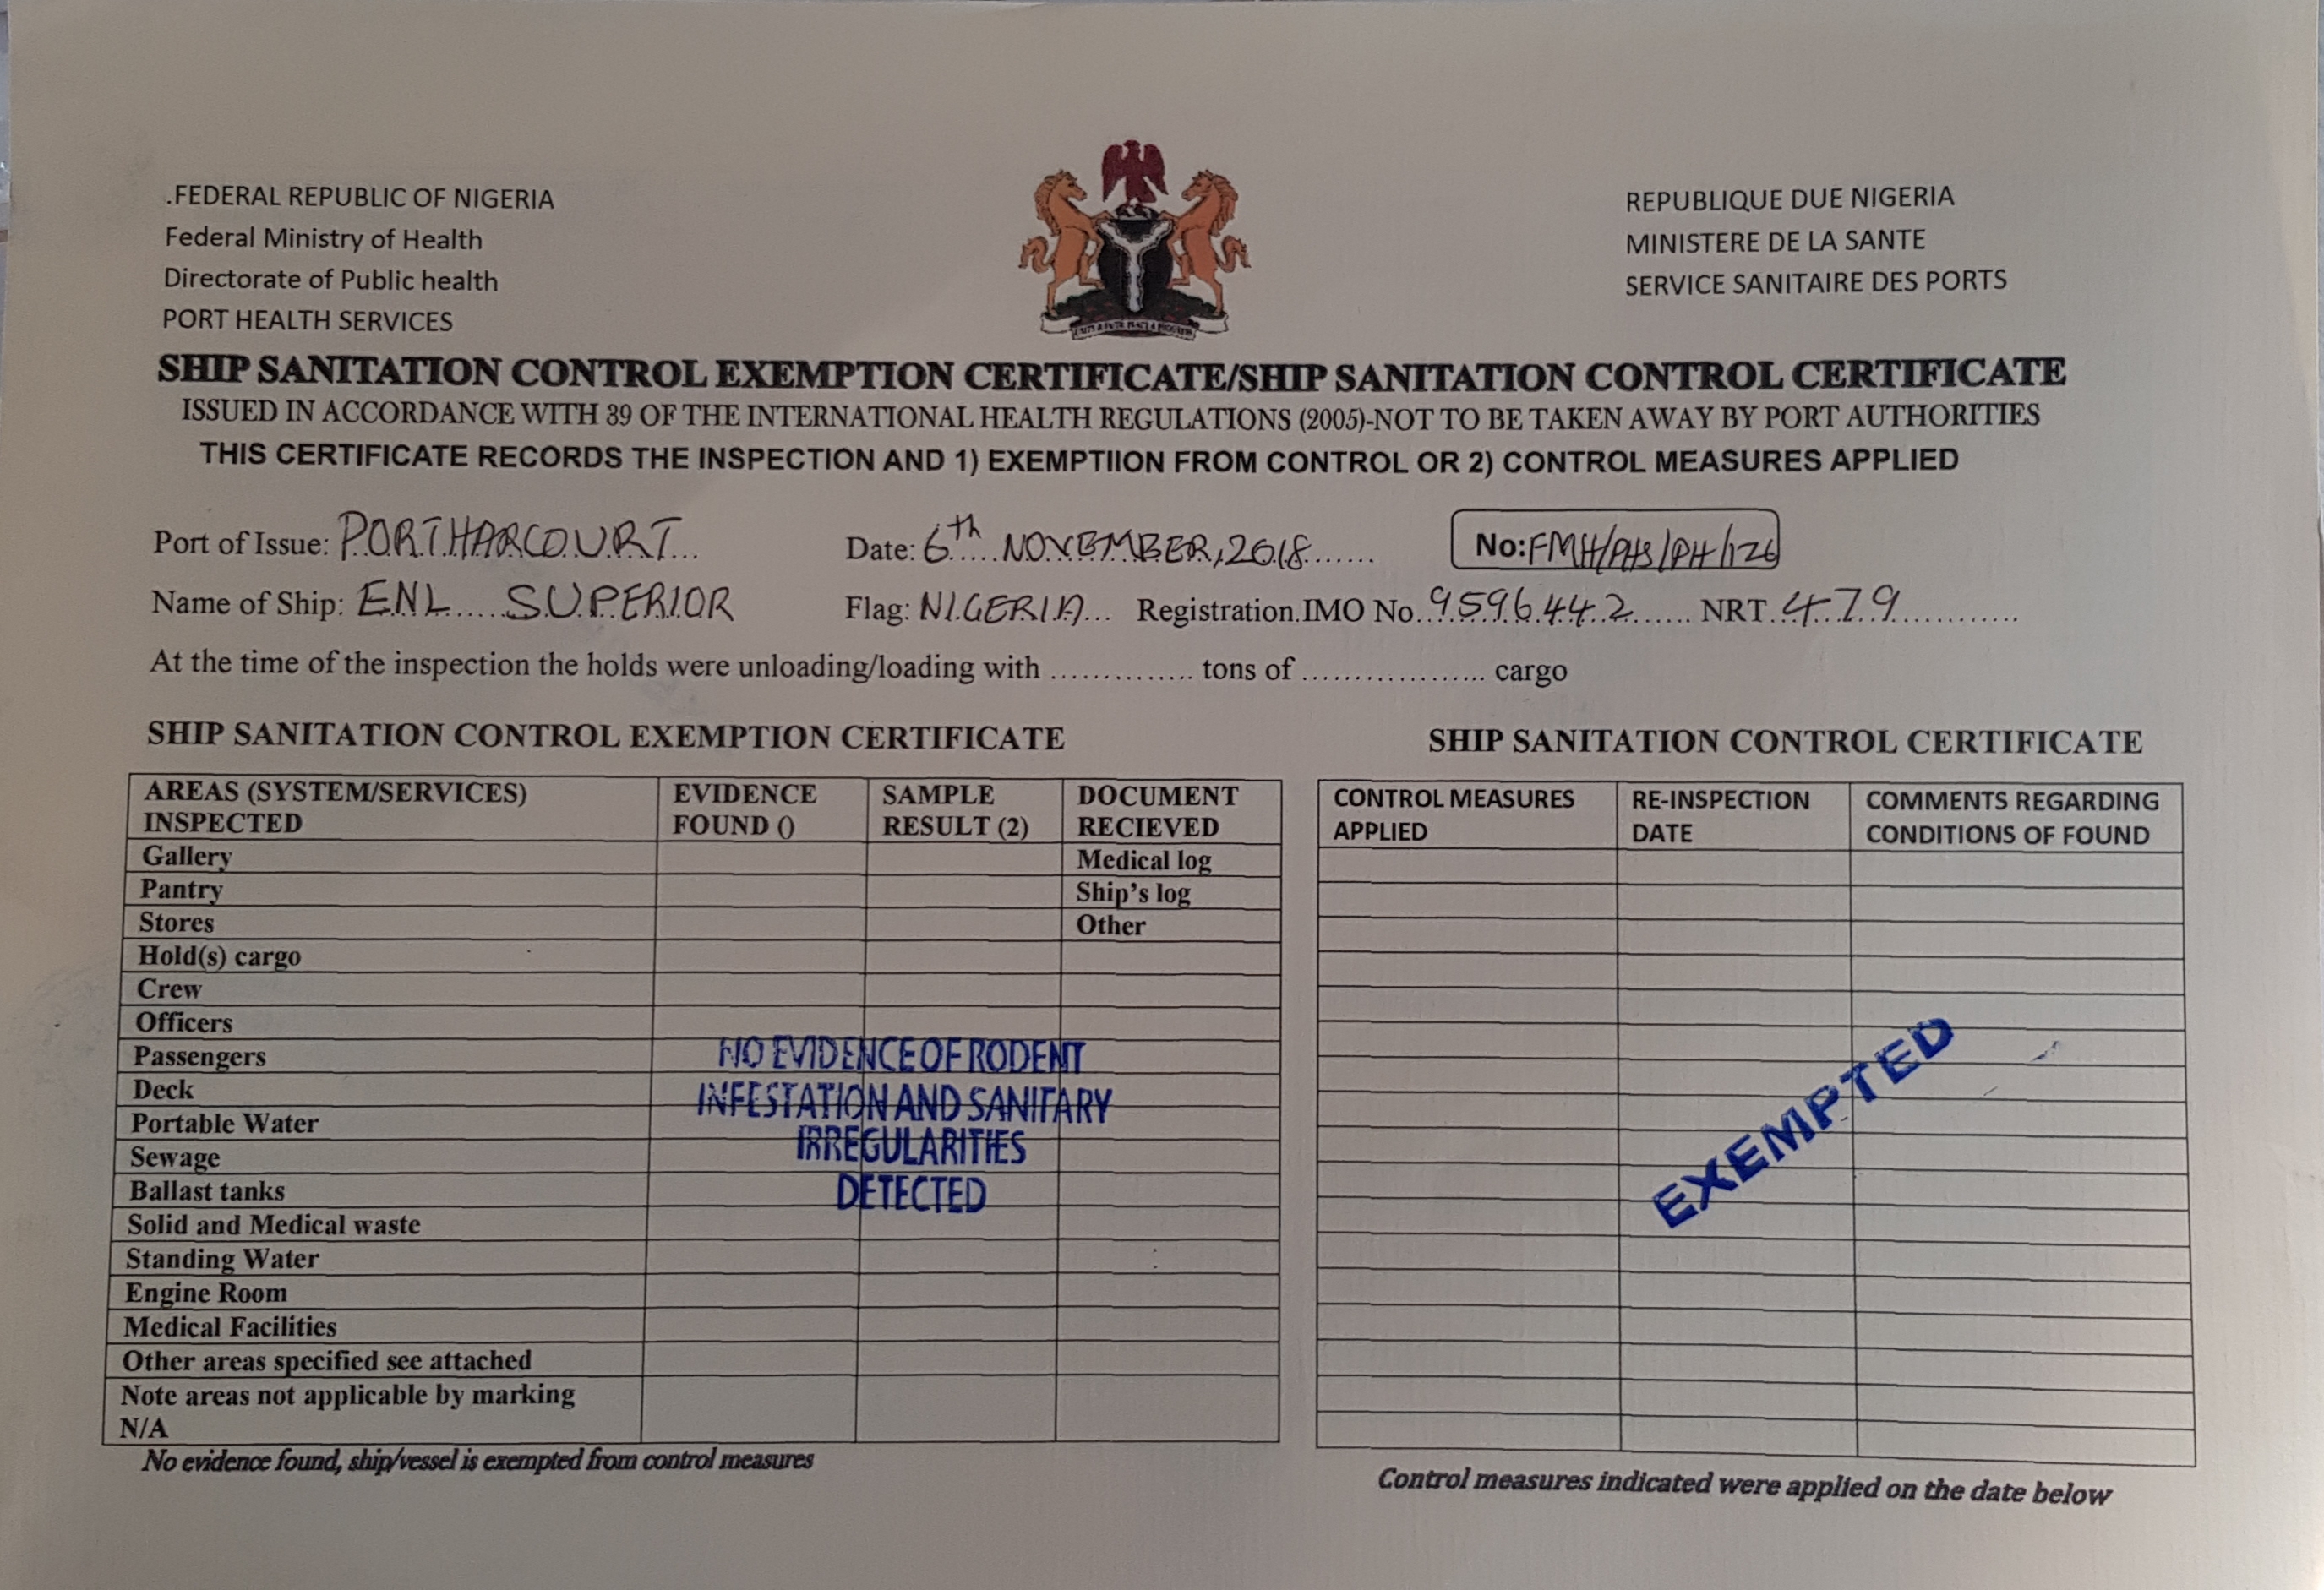 .FEDERAL REPUBLIC OF NIGERIA
Federal Ministry of Health
Directorate of Public health
PORT HEALTH SERVICES
REPUBLIQUE DUE NIGERIA
MINISTERE DE LA SANTE
SERVICE SANITAIRE DES PORTS
SHIP SANITATION CONTROL EXEMPTION CERTIFICATE/SHIP SANITATION CONTROL CERTIFICATE
ISSUED IN ACCORDANCE WITH 39 OF THE INTERNATIONAL HEALTH REGULATIONS (2005)-NOT TO BE TAKEN AWAY BY PORT AUTHORITIES
THIS CERTIFICATE RECORDS THE INSPECTION AND 1) EXEMPTIION FROM CONTROL OR 2) CONTROL MEASURES APPLIED
Port of Issue: PORTHARCOURT Date: 6th NOVEMBER, 2018 No: FMH/PHS/PH/126
Name of Ship: ENL SUPERIOR Flag: NIGERIA Registration.IMO No. 9596442 NRT 479
At the time of the inspection the holds were unloading/loading with .............. tons of .................. cargo
SHIP SANITATION CONTROL EXEMPTION CERTIFICATE
AREAS (SYSTEM/SERVICES) INSPECTED EVIDENCE FOUND () SAMPLE RESULT (2) DOCUMENT RECIEVED
Gallery Medical log
Pantry Ship's log
Stores Other
Hold(s) cargo
Crew
Officers
Passengers
Deck
Portable Water
Sewage
Ballast tanks
Solid and Medical waste
Standing Water
Engine Room
Medical Facilities
Other areas specified see attached
Note areas not applicable by marking
N/A
NO EVIDENCE OF RODENT
INFESTATION AND SANITARY
IRREGULARITIES
DETECTED
No evidence found, ship/vessel is exempted from control measures
SHIP SANITATION CONTROL CERTIFICATE
CONTROL MEASURES APPLIED RE-INSPECTION DATE COMMENTS REGARDING CONDITIONS OF FOUND
EXEMPTED
Control measures indicated were applied on the date below